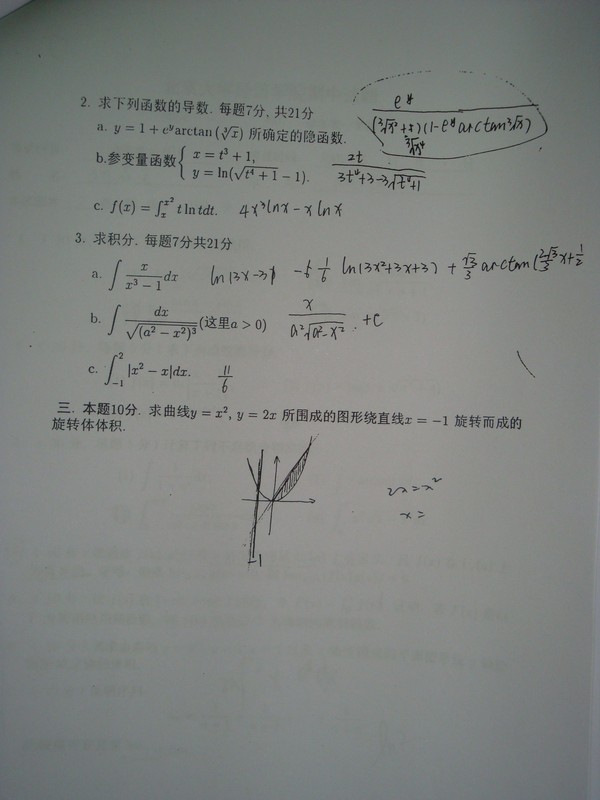 2. 求下列函数的导数. 每题7分, 共21分
a. y = 1 + e^y arctan (∛x) 所确定的隐函数.
e^y
1 - e^y arctan ∛x)
b.参变量函数 { x = t^3 + 1,
y = ln(√(t^4 + 1) - 1).
2t
3t^4+3-3√(t^4+1)
c. f(x) = ∫_x^{x^2} t ln t dt. 4x^3 lnx - x lnx
3. 求积分. 每题7分共21分
a. ∫ x/(x^3 - 1) dx ln(3x-3) 1/6 ln(3x^2+3x+3) + √3/3 arctan(2√3/3 x + 1/2
b. ∫ dx/√((a^2 - x^2)^3) (这里a > 0) x/(a^2√(a^2-x^2)) +C
c. ∫_{-1}^{2} |x^2 - x|dx. 11/6
三. 本题10分. 求曲线y = x^2, y = 2x 所围成的图形绕直线x = -1 旋转而成的
旋转体体积.
2x = x^2
x =
-1